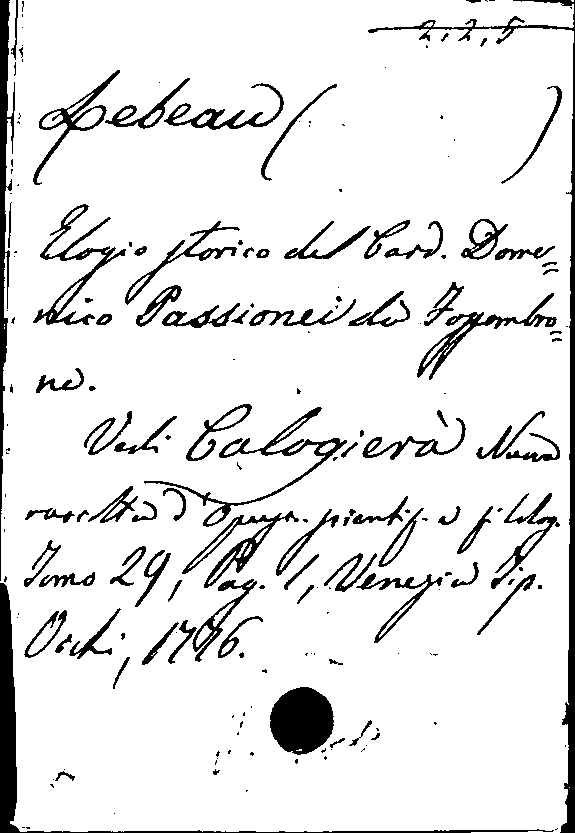 2,2,5
Lebeau ( )
Elogio storico del Card. Dome=
nico Passionei di Fossombro=
ne.
Vedi Calogierà Nuova
raccolta d'Opusc. scientif. e filolog.
Tomo 29, Pag. 1, Venezia Tip.
Occhi, 1776.